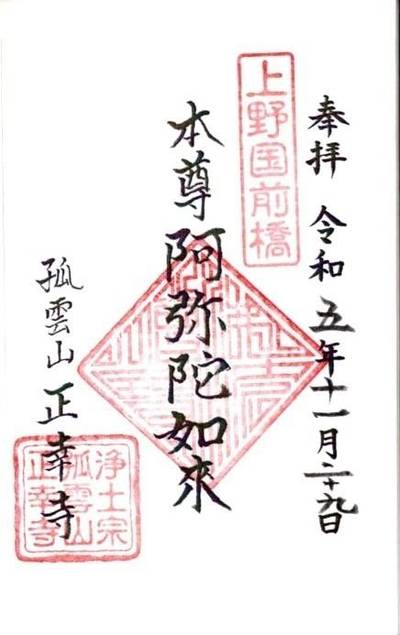 奉拝 令和五年十一月二十九日
上野国前橋
本尊阿弥陀如来
孤雲山 正幸寺
浄土宗
孤雲山
正幸寺